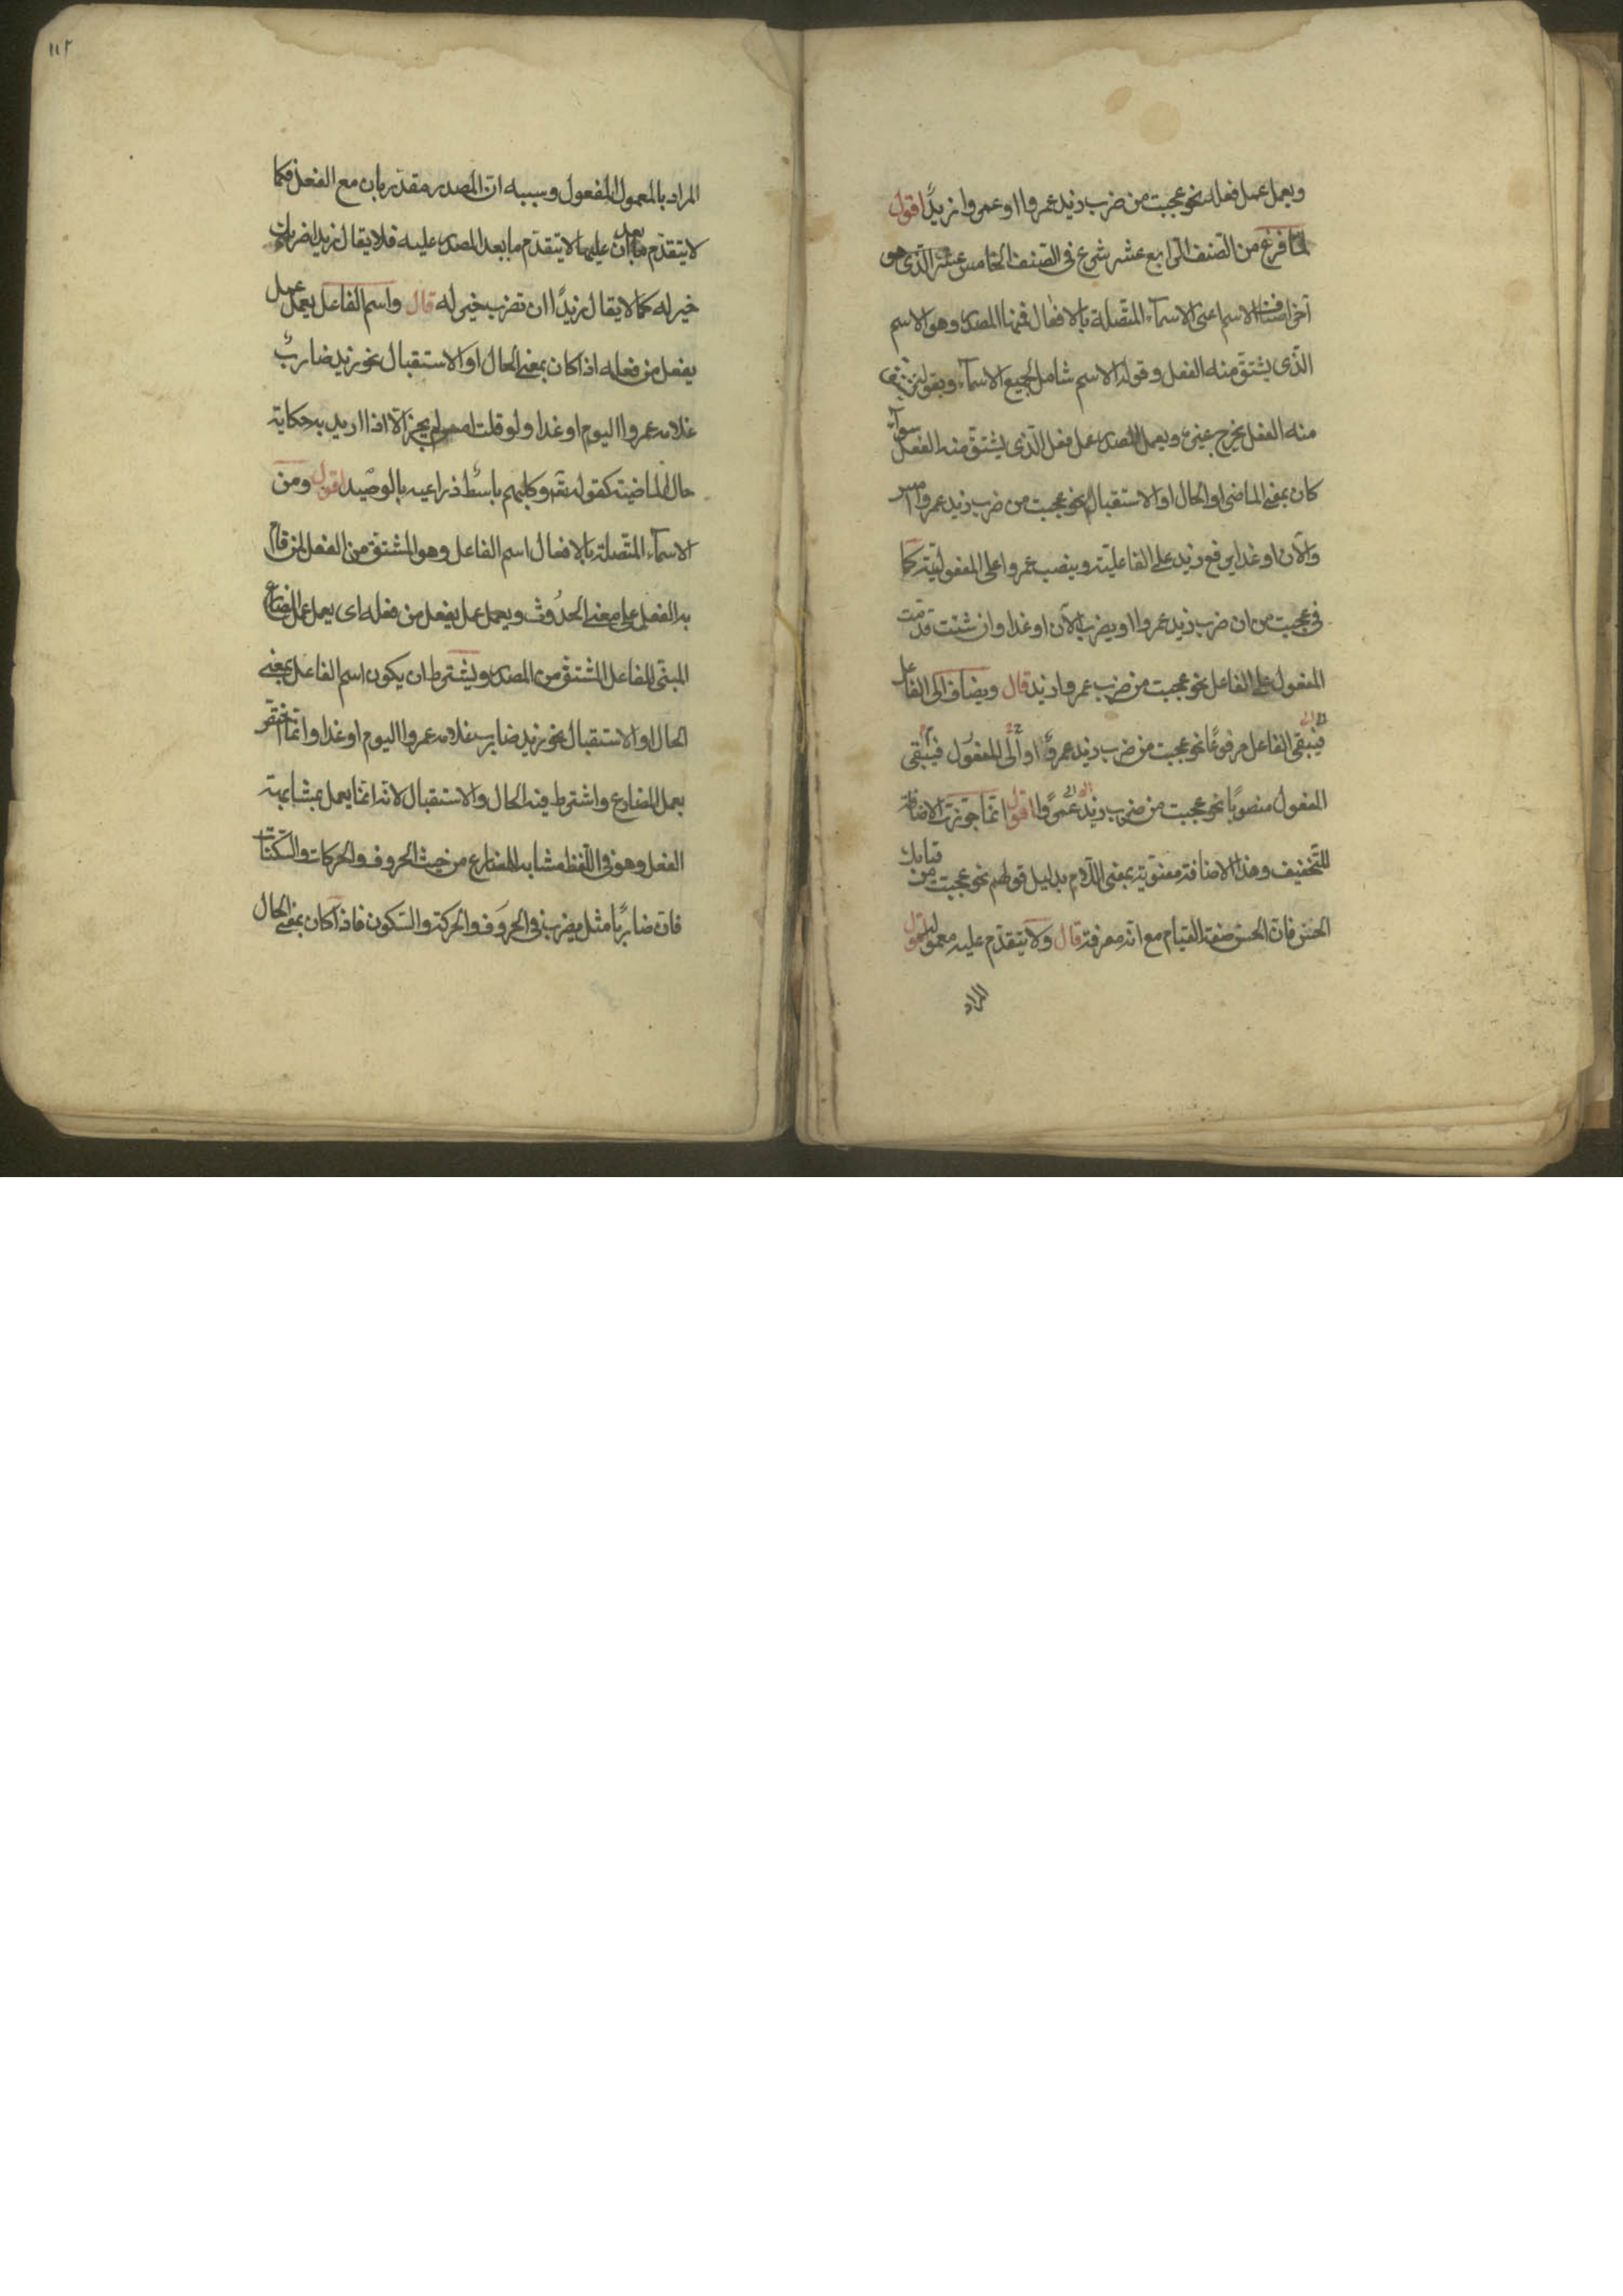 ويعمل عمل فعله نحو عجبت من ضرب زيد عمروا او عمروا زيدًا اقول
لمّا فرغ من الصّنف الرّابع عشر شرع فى الصّنف الخامس عشر الّذى هو
آخر اصناف الاسم اعنى الاسمآء المتّصلة بالافعال فمنها المصدر وهو الاسم
الّذى يشتقّ منه الفعل وقوله الاسم شامل لجميع الاسمآء وبقوله يشتق
منه الفعل يخرج غيره ويعمل المصدر عمل فعل الّذى يشتقّ منه الفعل سوآء
كان بمعنى الماضى او الحال او الاستقبال نحو عجبت من ضرب زيد عمروا امس
والآن او غدا يرفع زيد على الفاعليّة وينصب عمروا على المفعوليّة كما
فى عجبت من ان ضرب زيد عمروا او يضرب الآن او غدا وان شئت قدّمت
المفعول على الفاعل نحو عجبت من ضرب عمروا زيد قال ويضاف الى الفاعل
فيبقى الفاعل مرفوعًا نحو عجبت من ضرب زيد عمروٌ او الى المفعول فيبقى
المفعول منصوبًا نحو عجبت من ضرب زيد عمروًا اقول انّما جوّزت الاضافة
للتّخفيف وهذا الاضافة معنويّة بمعنى اللّام بدليل قولهم نحو عجبت من قيامك
الحسن فانّ الحسن صفة القيام مع انّه معرفة قال ولا يتقدّم عليه معموله اقول
المراد
١١٢
المراد بالمعمول المفعول وسببه انّ المصدر مقدّر بان مع الفعل فكما
لا يتقدّم ما بعد ان عليها لا يتقدّم ما بعد المصدر عليه فلا يقال زيدا ضربك
خير له كما لا يقال زيدًا ان تضرب خير له قال واسم الفاعل يعمل عمل
يفعل من فعله اذا كان بمعنى الحال او الاستقبال نحو زيد ضاربٌ
غلامه عمروا اليوم او غدا ولو قلت امس لم يجز الّا اذا اريد به حكاية
حال الماضية كقوله تعه وكلبهم باسط ذراعيه بالوصيد اقول ومن
الاسمآء المتّصلة بالافعال اسم الفاعل وهو المشتقّ من الفعل لمن قام
به الفعل على معنى الحدوث ويعمل عمل يفعل من فعله اى يعمل عمل المضارع
المبنّى للفاعل المشتقّ من المصدر ويشترط ان يكون اسم الفاعل بمعنى
الحال او الاستقبال نحو زيد ضارب غلامه عمروا اليوم او غدا وانّما اختصّ
بعمل المضارع واشترط فيه الحال والاستقبال لانّه انّما يعمل بمشابهة
الفعل وهو فى اللّفظ مشابه للمضارع من حيث الحروف والحركات والسّكنات
فانّ ضاربًا مثل يضرب فى الحروف والحركة والسّكون فاذا كان بمعنى الحال